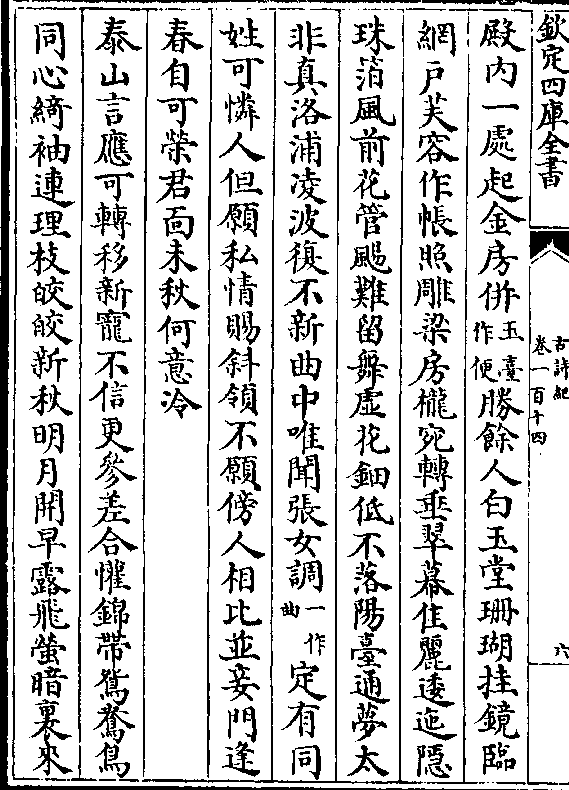 欽定四庫全書
古詩紀
卷一百十四
六
殿内一處起金房併玉臺作便勝餘人白玉堂珊瑚挂鏡臨
網戸芙容作帳照雕梁房櫳宛轉垂翠幕佳麗逶迤隠
珠箔風前花管颺難留舞處花鈿低不落陽臺通夢太
非真洛浦凌波復不新曲中唯聞張女調一作曲定有同
姓可憐人但願私情賜斜領不願傍人相比並妾門逢
春自可榮君面未秋何意冷
泰山言應可轉移新寵不信更參差合懽錦帶鴛鴦鳥
同心綺袖連理枝皎皎新秋明月開早露飛螢暗裏來